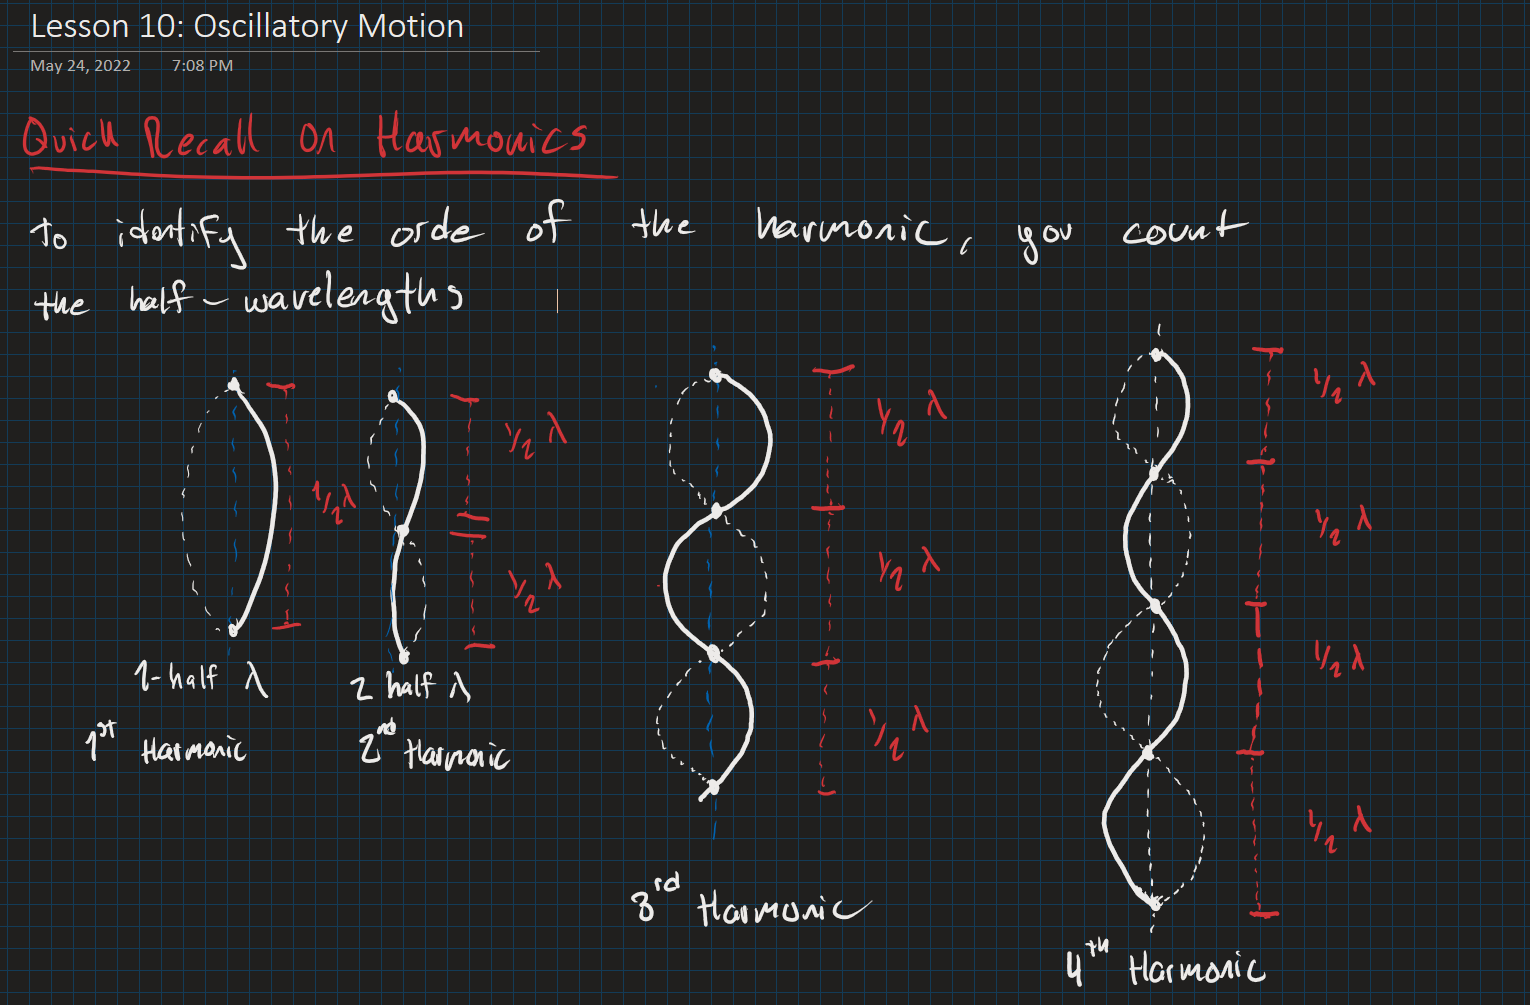 Lesson 10: Oscillatory Motion
May 24, 2022 7:08 PM
Quick Recall on Harmonics
To identify the order of the harmonic, you count
the half-wavelengths
1/2 λ
1-half λ
1st Harmonic
1/2 λ
1/2 λ
2 half λ
2nd Harmonic
1/2 λ
1/2 λ
1/2 λ
3rd Harmonic
1/2 λ
1/2 λ
1/2 λ
1/2 λ
4th Harmonic